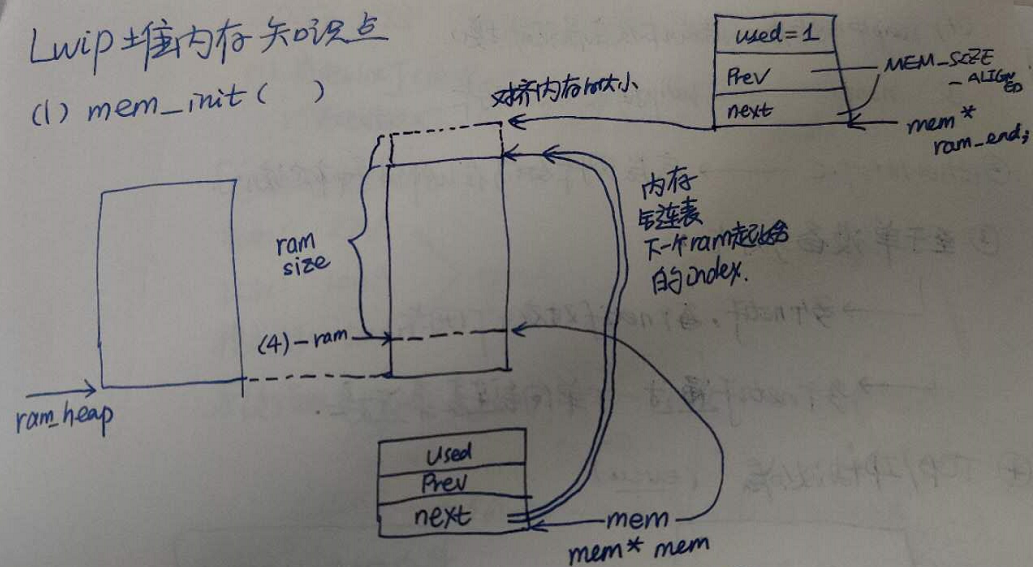 Lwip堆内存知识点
(1) mem_init( )
used=1
Prev
next
MEM_SIZE
_ALIGN
ED
mem*
ram_end;
对齐内存的大小
内存
链表
下一个ram起始
的index.
ram
size
(4)-ram
ram_heap
used
Prev
next
mem
mem* mem